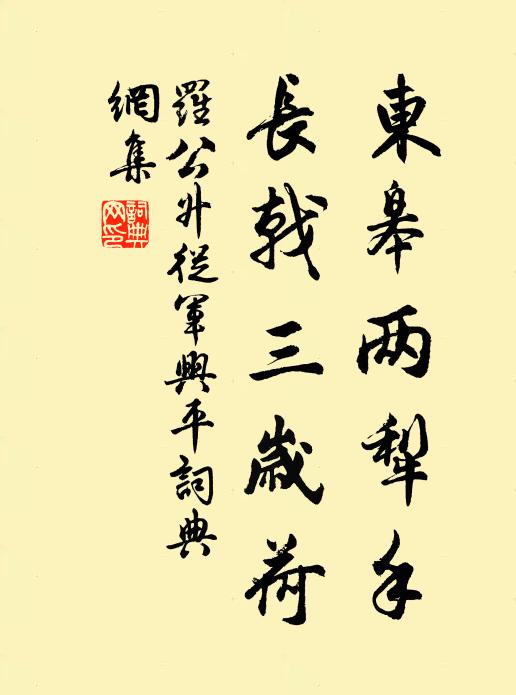 東皋两犁手
長戟三歲荷
羅公升從軍興平詞典
網集
詞典
网印